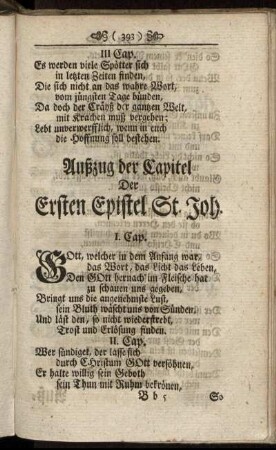 ( 393 )
III Cap.
Es werden viele Spötter sich
in letzten Zeiten finden,
Die sich nicht an das wahre Wort,
vom jüngsten Tage bünden,
Da doch der Cräyß der gantzen Welt,
mit Krachen muß vergehen:
Lebt unverwerfflich, wenn in euch
die Hoffnung soll bestehen.
Außzug der Capitel
Der
Ersten Epistel St. Joh.
I. Cap.
GOtt, welcher in dem Anfang war,
das Wort, das Licht das Leben,
Den GOtt hernach im Fleische hat
zu schauen uns gegeben,
Bringt uns die angenehmste Lust,
sein Bluth wäscht uns von Sünden,
Und läst den, so nicht wiederstrebt,
Trost und Erlösung finden.
II. Cap.
Wer sündiget, der lasse sich
durch CHristum GOtt versöhnen,
Er halte willig sein Geboth
sein Thun mit Ruhm bekrönen,
B b 5
So